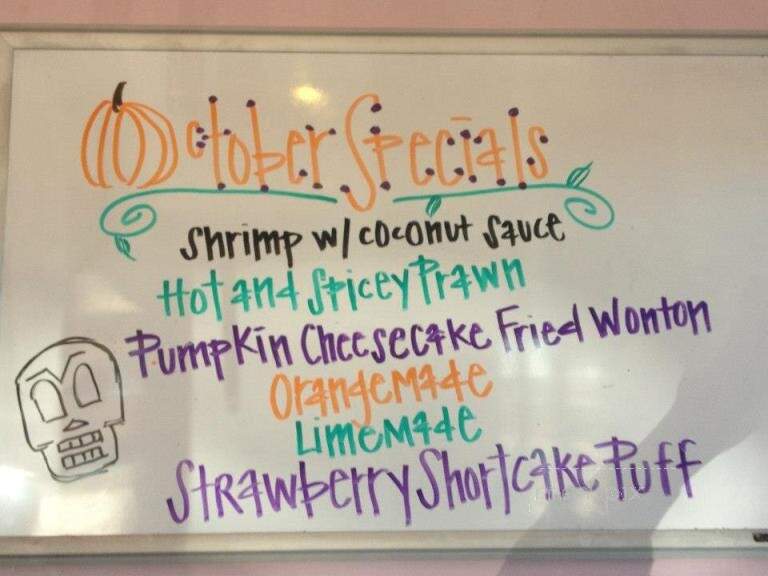 October Specials
Shrimp w/ coconut Sauce
Hot and Spicey Prawn
Pumpkin Cheesecake Fried Wonton
OrangeMade
LimeMade
Strawberry Shortcake Puff